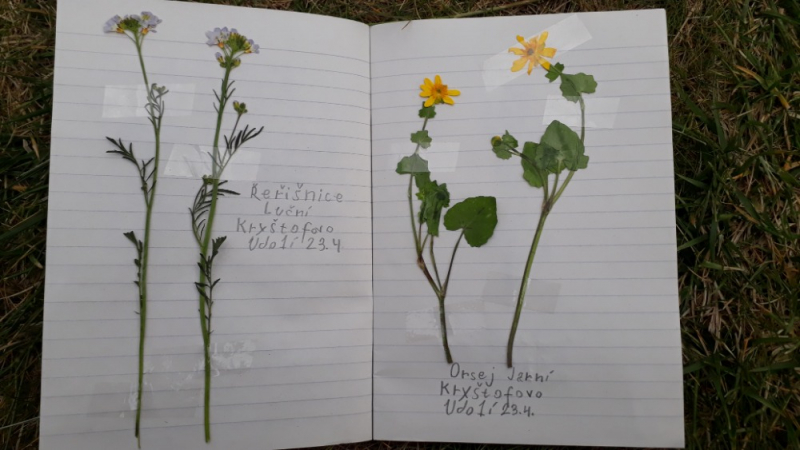 Řeřišnice
Luční
Kryštofovo
Údolí 23.4
Orsej Jarní
Kryštofovo
Údolí 23.4.